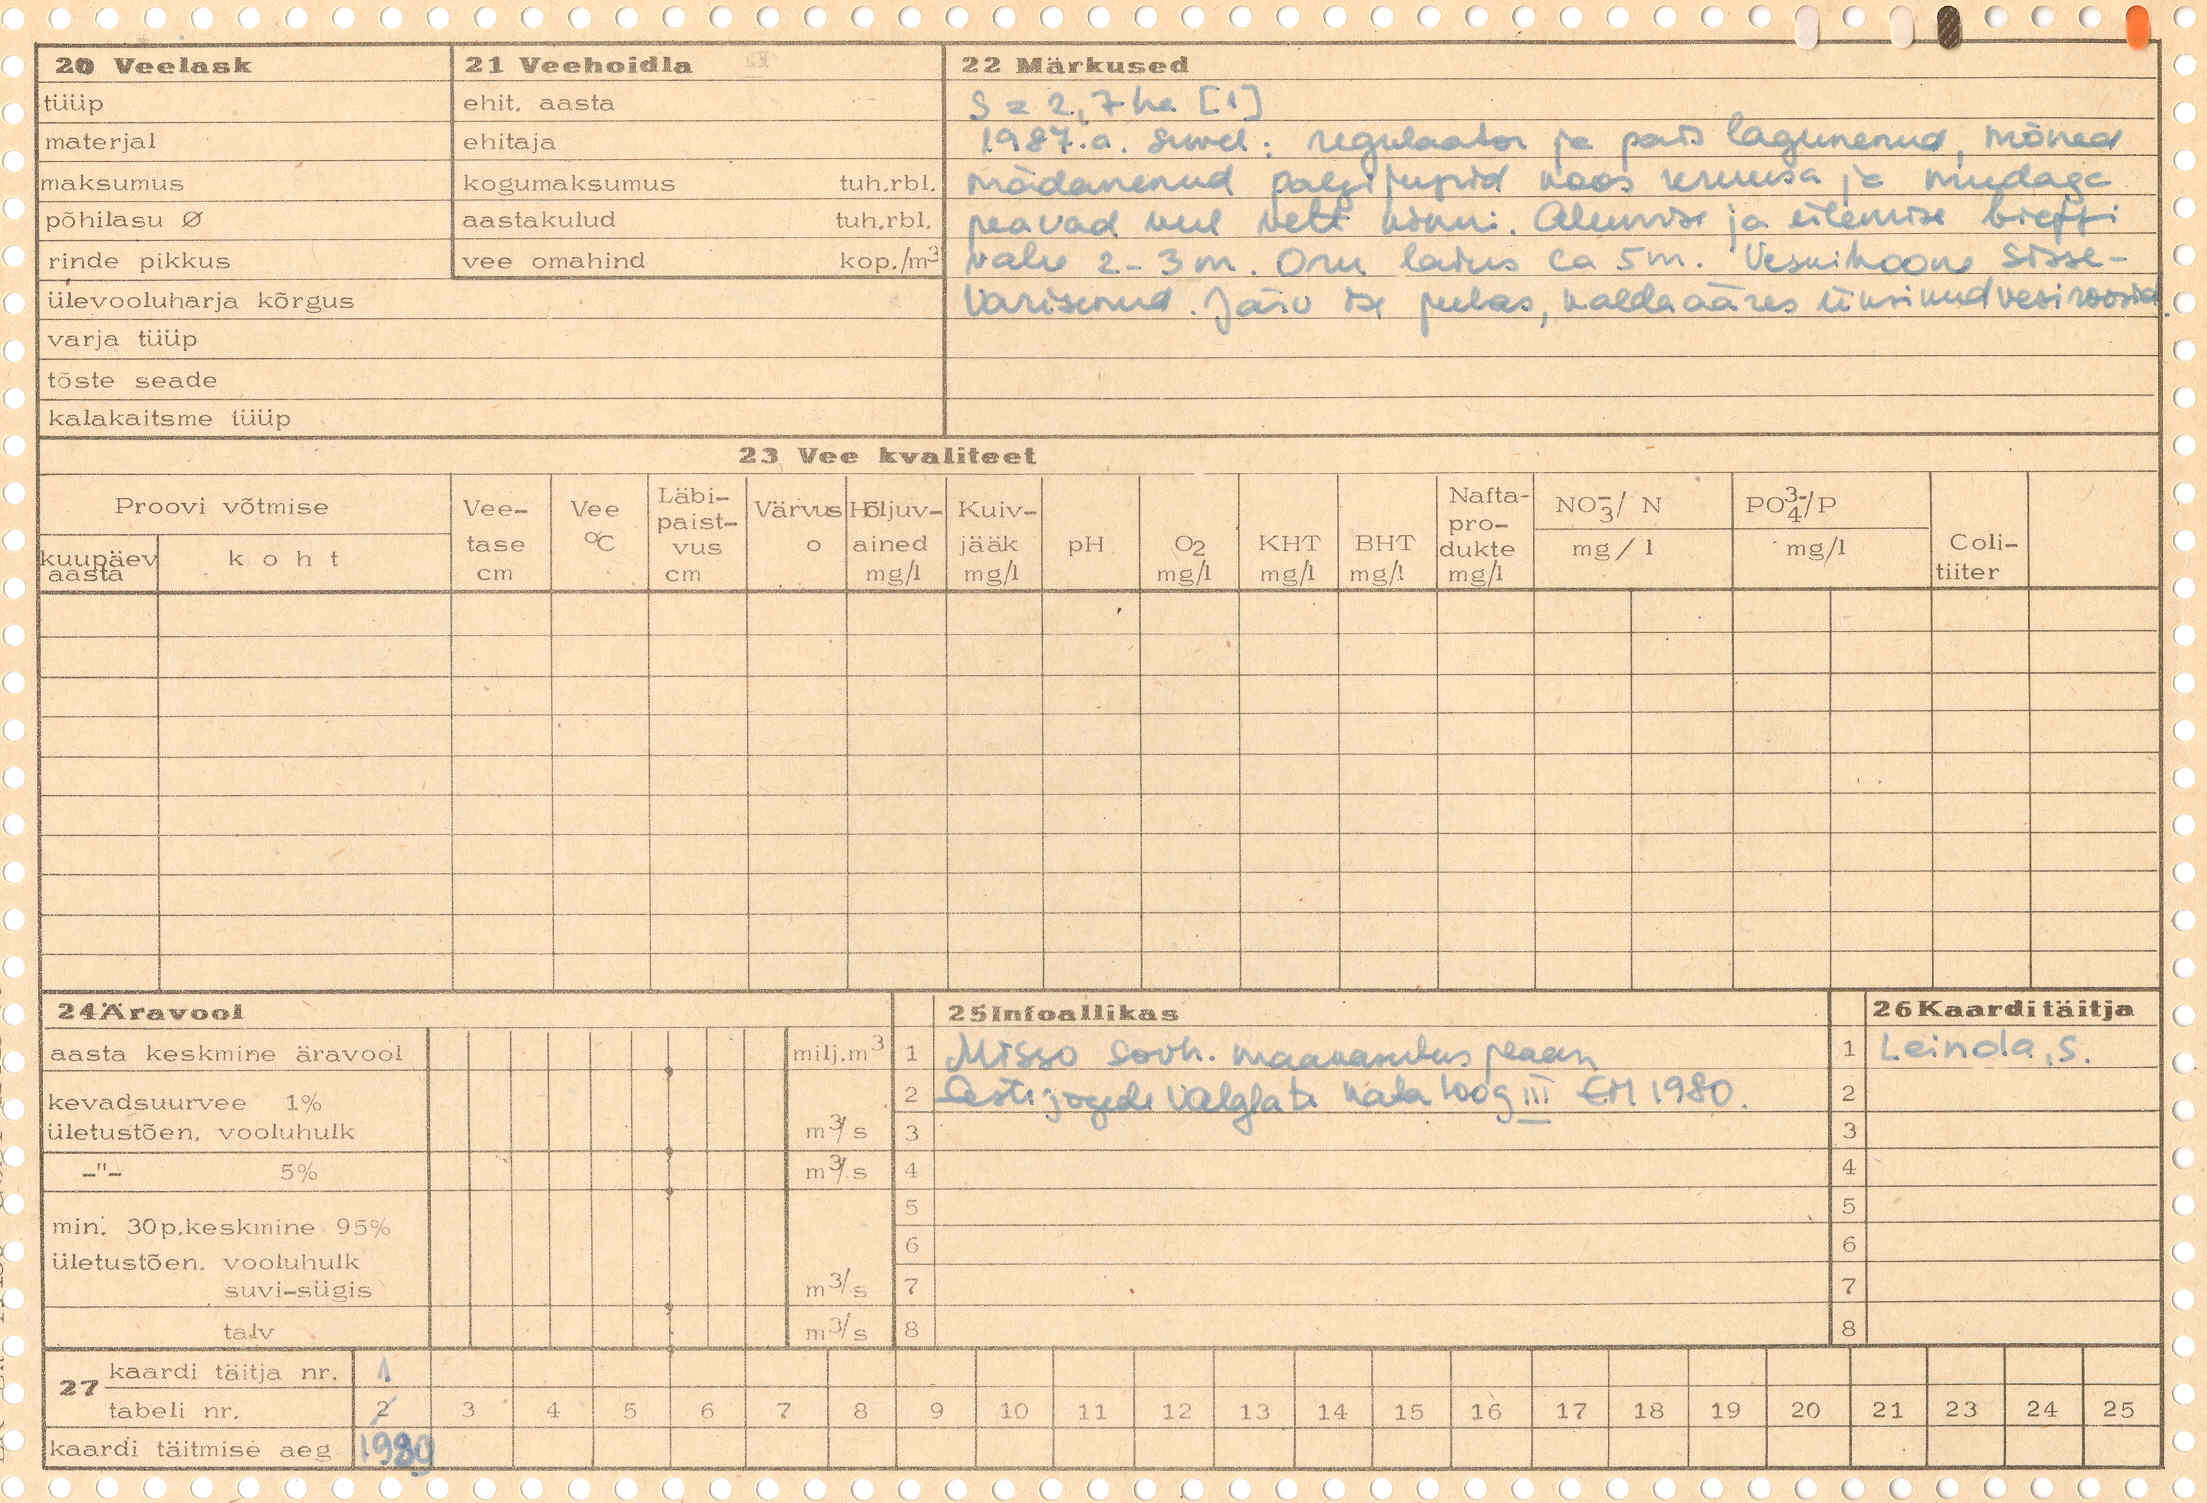 20 Veelask
tüüp
materjal
maksumus
põhilasu Ø
rinde pikkus
ülevooluharja kõrgus
varja tüüp
tõste seade
kalakaitsme tüüp
21 Veehoidla
ehit. aasta
ehitaja
kogumaksumus tuh.rbl.
aastakulud tuh.rbl.
vee omahind kop./m3
22 Märkused
S = 2,7 ha [1]
1987.a. suvel: regulaator ja pais lagunenud, mõned
mädanenud palgijupid koos kruusa ja mudaga
peavad veel vett kinni. Alumise ja ülemise bieffi
vahe 2-3 m. Oru laius ca 5 m. Veskihoone sisse-
varisenud. Järv ise puhas, kaldaääres üksikud vesiroosid.
23 Vee kvaliteet
Proovi võtmise
kuupäev aasta
koht
Vee-
tase
cm
Vee
°C
Läbi-
paist-
vus
cm
Värvus
o
Hõljuv-
ained
mg/l
Kuiv-
jääk
mg/l
pH
O2
mg/l
KHT
mg/l
BHT
mg/l
Nafta-
pro-
dukte
mg/l
NO3-/ N
mg/l
PO4 3-/P
mg/l
Coli-
tiiter
24 Äravool
aasta keskmine äravool milj.m3
kevadsuurvee 1%
ületustõen. vooluhulk m3/s
-"- 5% m3/s
min. 30p.keskmine 95%
ületustõen. vooluhulk
suvi-sügis m3/s
talv m3/s
25 Infoallikas
1 Misso sovh. maakasutus plaan
2 Eesti jõgede valglate kataloog III EM 1980.
3
4
5
6
7
8
26 Kaarditäitja
1 Leinola, S.
2
3
4
5
6
7
8
27
kaardi täitja nr. 1
tabeli nr. 2 3 4 5 6 7 8 9 10 11 12 13 14 15 16 17 18 19 20 21 23 24 25
kaardi täitmise aeg 1989